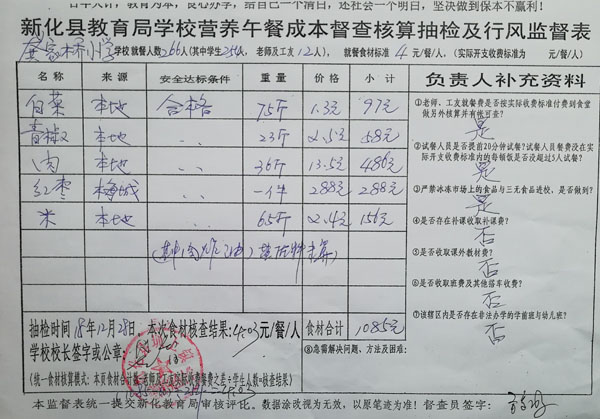 百年大计，教育为本，良心办学，给自己一个清白，还社会一个明白，坚决做到保本不赢利！
新化县教育局学校营养午餐成本督查核算抽检及行风监督表
学校 就餐人数266人(其中学生254人，老师及工友12人)， 就餐食材标准 4 元/餐/人， (实际开支收费标准为 元/餐/人)
名称 来源 安全达标条件 重量 价格 小计 负责人补充资料
白菜 本地 合格 75斤 1.3元 97元
青椒 本地 23斤 2.5元 58元
肉 本地 36斤 13.5元 486元
红枣 梅城 一件 288元 288元
米 本地 65斤 2.4元 156元
①老师、工友就餐费是否按实际收费标准付到食堂
做另外核算并有帐可查？
是
②试餐人员是否提前20分钟试餐？试餐人员餐费没在实
际开支收费标准内的每顿饭是否没超过5人试餐？
是
③严禁冰冻市场上的食品与三无食品进校，是否做到？
是
④是否存在补课收取补课费？
否
⑤是否收取课外教材费？
否
⑥是否收取班费及其他搭车收费？
否
⑦该辖区内是否存在非法办学的学前班与幼儿班？
否
抽检时间18年12月28日。本次食材核查结果:4.03元/餐/人 食材合计 1085元
学校校长签字或公章:
⑧急需解决问题、方法及困难:
本监督表统一提交新化教育局审核评比。数据涂改视为无效，以原笔迹为准！督查员签字: